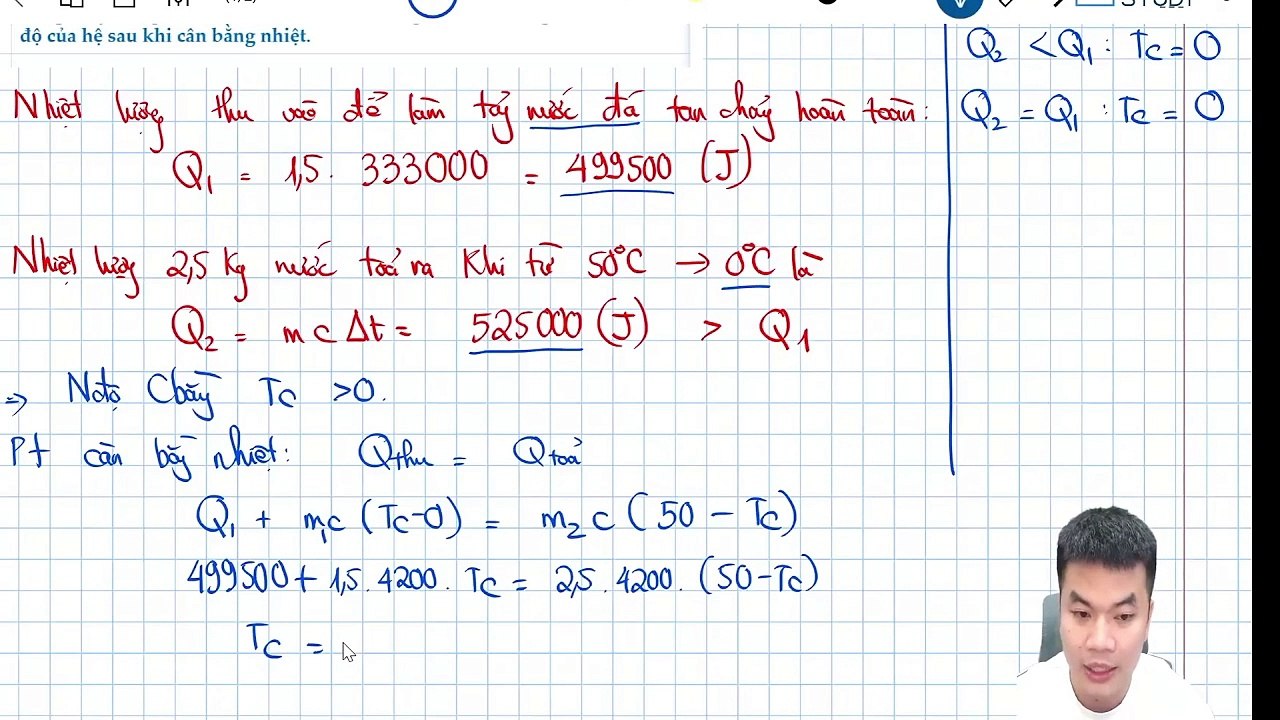 độ của hệ sau khi cân bằng nhiệt.
Nhiệt lượng thu vào để làm tảg nước đá tan chảy hoàn toàn:
Q₁ = 1,5 . 333000 = 499500 (J)
Nhiệt lượg 2,5 Kg nước toả ra Khi từ 50°C → 0°C là
Q₂ = m c Δt = 525000 (J) > Q₁
⇒ Nđộ Cbằg Tc >0.
Pt cân bằg nhiệt: Qthu = Qtoả
Q₁ + m₁c (Tc-0) = m₂ c (50 - Tc)
499500 + 1,5 . 4200 . Tc = 2,5 . 4200 . (50-Tc)
Tc =
Q₂ < Q₁ : Tc = 0
Q₂ = Q₁ : Tc = 0